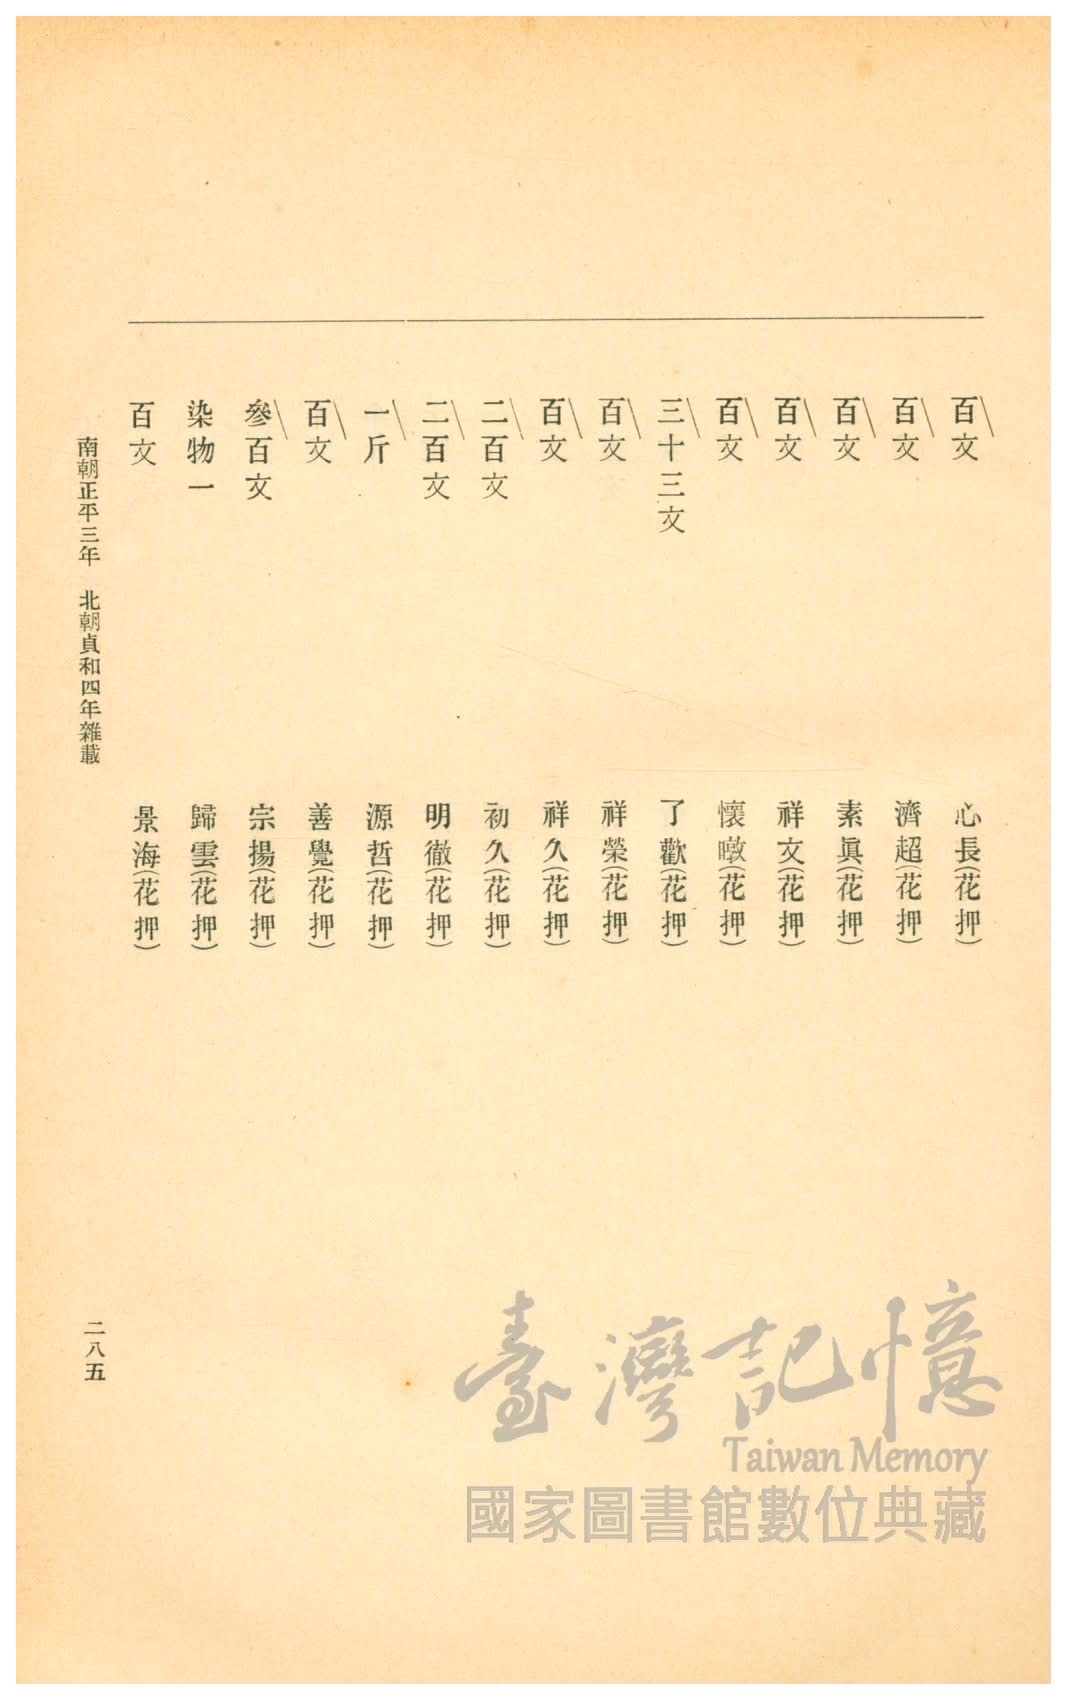 百文　心長(花押)
百文　濟超(花押)
百文　素眞(花押)
百文　祥文(花押)
百文　懷暾(花押)
三十三文　了歡(花押)
百文　祥榮(花押)
百文　祥久(花押)
二百文　初久(花押)
二百文　明徹(花押)
一斤　源哲(花押)
百文　善覺(花押)
參百文　宗揚(花押)
染物一　歸雲(花押)
百文　景海(花押)
南朝正平三年　北朝貞和四年雜載
二八五
臺灣記憶
Taiwan Memory
國家圖書館數位典藏